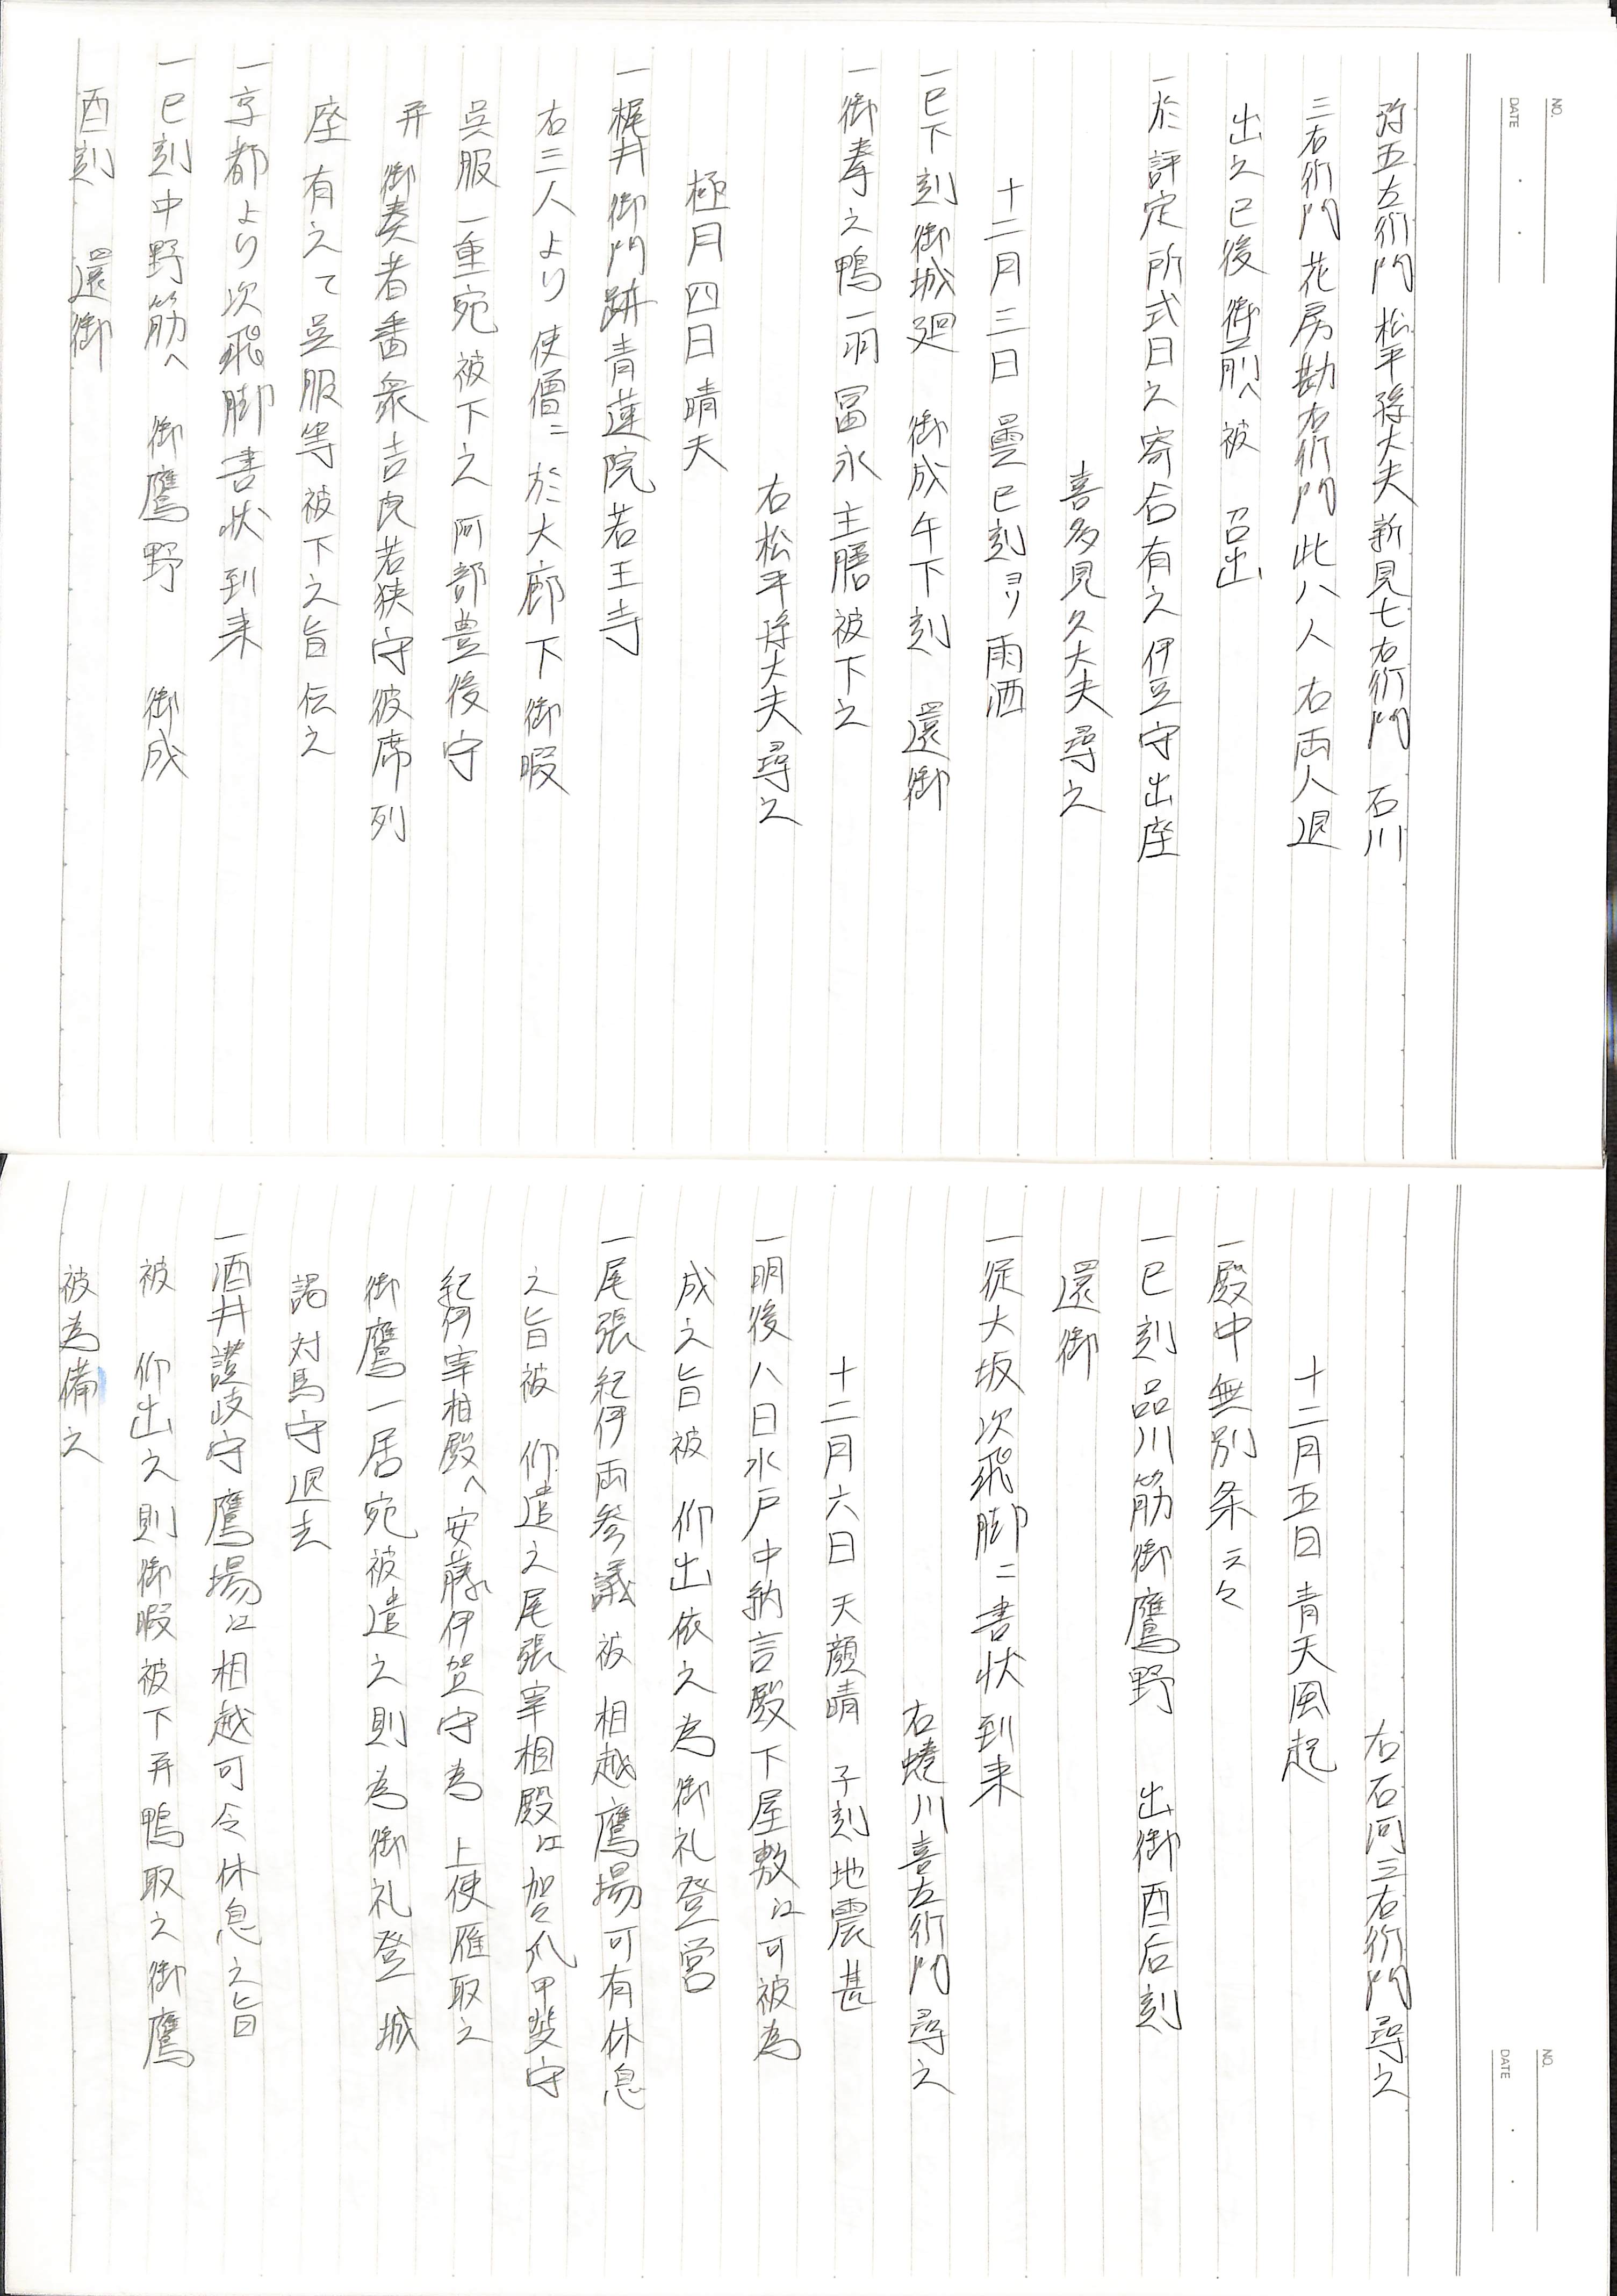 NO.
DATE
弥五左衛門 松平隼大夫 新見七右衛門 石川
三右衛門 花房勘右衛門 此八人 右両人退
出之已後 御前へ 被 召出
一於 評定所式日之寄合有之 伊豆守出座
喜多見久大夫尋之
十二月三日 曇 巳刻ヨリ雨洒
一巳下刻 御城廻 御成 午下刻 還御
一御拳之鴨一羽 冨永主膳被下之
右松平隼大夫尋之
極月四日 晴天
一梶井御門跡 青蓮院 若王寺
右三人より使僧ニ 於大廊下御暇
呉服一重宛 被下之 阿部豊後守
并 御奏者番衆 吉良若狭守彼席列
座有之て呉服等 被下之旨伝之
一京都より次飛脚書状到来
一巳刻中野筋へ 御鷹野 御成
酉刻 還御
NO.
DATE
右石河三右衛門尋之
十二月五日 青天風起
一殿中無別条云々
一巳刻品川筋御鷹野 出御 酉后刻
還御
一従大坂次飛脚ニ書状到来
右蜷川喜左衛門尋之
十二月六日 天顔晴 子刻地震甚
一明後八日水戸中納言殿下屋敷江可被為
成之旨被 仰出依之為御礼登営
一尾張紀伊両参議 被 相越鷹場可有休息
之旨被 仰遣之尾張宰相殿江賀々爪甲斐守
紀伊宰相殿へ安藤伊賀守為 上使雁取之
御鷹一居宛被遣之則為御礼登 城
謁 対馬守退去
一酒井讃岐守鷹場江相越可令休息之旨
被 仰出之則御暇被下并鴨取之御鷹
被為備之